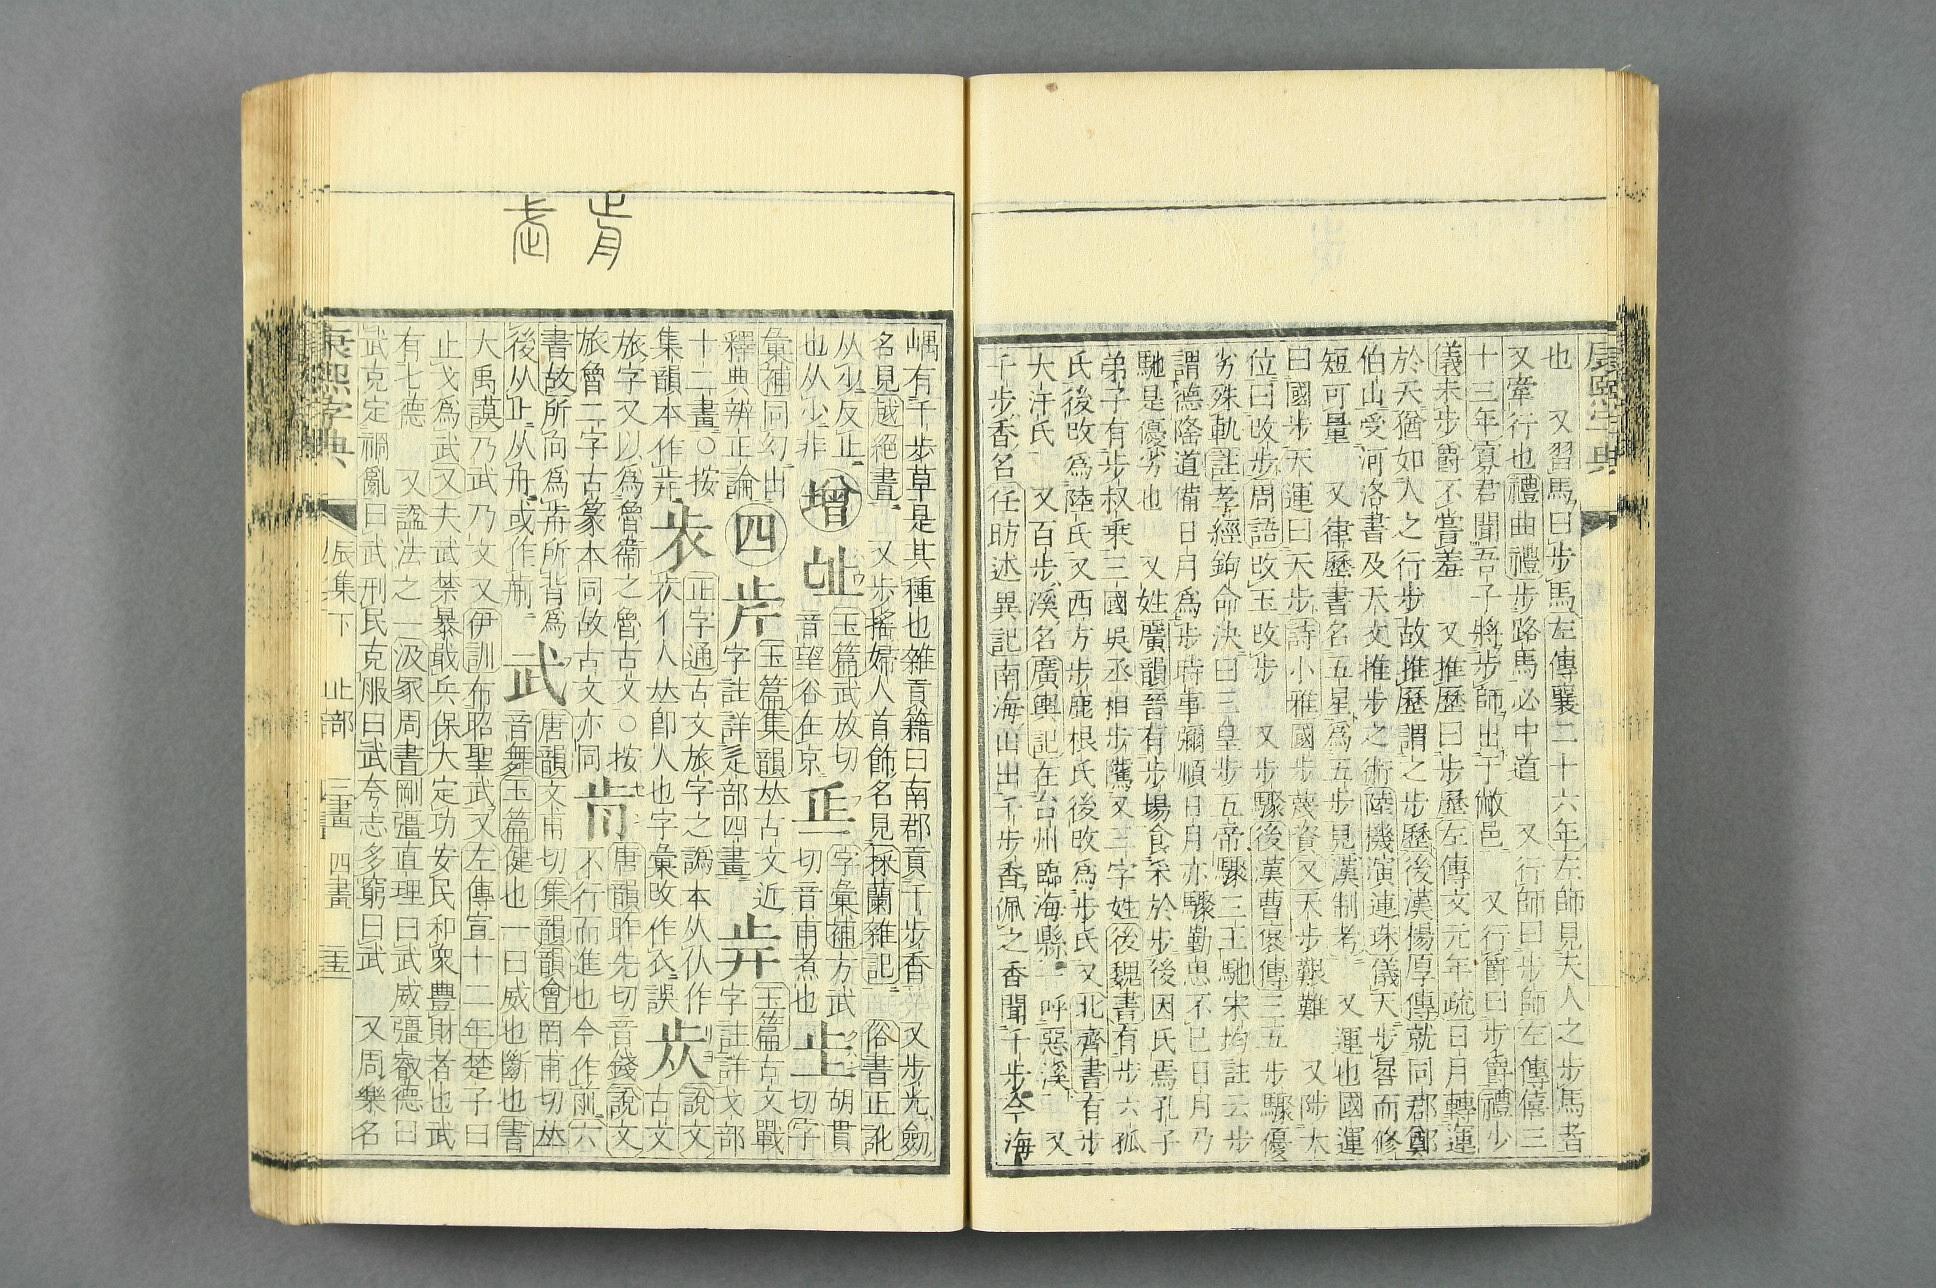 康熙字典
也 又習馬曰步馬左傳襄二十六年左師見夫人之步馬者
又牽行也禮曲禮步路馬必中道 又行師曰步師左傳僖三
十三年寡君聞吾子將步師出于敝邑 又行爵曰步爵禮少
儀未步爵不嘗羞 又推歷曰步歷左傳文元年疏日月轉運
於天猶如人之行步故推歷謂之步歷後漢楊厚傳就同郡鄭
伯山受河洛書及天文推步之術陸機演連珠儀天步晷而修
短可量 又律歷書名五星爲五步見漢制考 又運也國運
曰國步天運曰天步詩小雅國步蔑資又天步艱難 又陟大
位曰改步周語改玉改步 又步驟後漢曹褒傳三五步驟優
劣殊軌註孝經鉤命決曰三皇步五帝驟三王馳宋均註云步
謂德隆道備日月爲步時事彌順日月亦驟勤思不已日月乃
馳是優劣也 又姓廣韻晉有步場食采於步後因氏焉孔子
弟子有步叔乘三國吳丞相步騭又三字姓後魏書有步六孤
氏後改爲陸氏又西方步鹿根氏後改爲步氏又北齊書有步
大汗氏 又百步溪名廣輿記在台州臨海縣一呼惡溪 又
千步香名任昉述異記南海山出千步香佩之香聞千步今海
嵎有千步草是其種也雜貢籍曰南郡貢千步香 又步光劒
名見越絕書 又步搖婦人首飾名見採蘭雜記 俗書正訛
从少反止
也从少非 增 玉篇武放切
音望谷在京 字彙補方武
切音甫煮也 胡貫
切字
彙補同幻出
釋典辨正論 四 玉篇集韻𠀤古文近
字註詳辵部四畫 玉篇古文戰
字註詳戈部
十二畫○按
集韻本作 正字通古文旅字之譌本从㐺作
㐺亻人𠀤卽人也字彙改作衣誤 說文
古文
旅字又以爲魯衞之魯古文○按
旅魯二字古篆本同故古文亦同 唐韻昨先切音錢說文
不行而進也今作前六
書故所向爲歬所背爲
後从止从舟或作 武 唐韻文甫切集韻韻會罔甫切𠀤
音舞玉篇健也一曰威也斷也書
大禹謨乃武乃文又伊訓布昭聖武又左傳宣十二年楚子曰
止戈爲武又夫武禁暴戢兵保大定功安民和衆豐財者也武
有七德 又諡法之一汲冢周書剛彊直理曰武威彊叡德曰
武克定禍亂曰武刑民克服曰武夸志多窮曰武 又周樂名
康熙字典 辰集下 止部 三畫 四畫